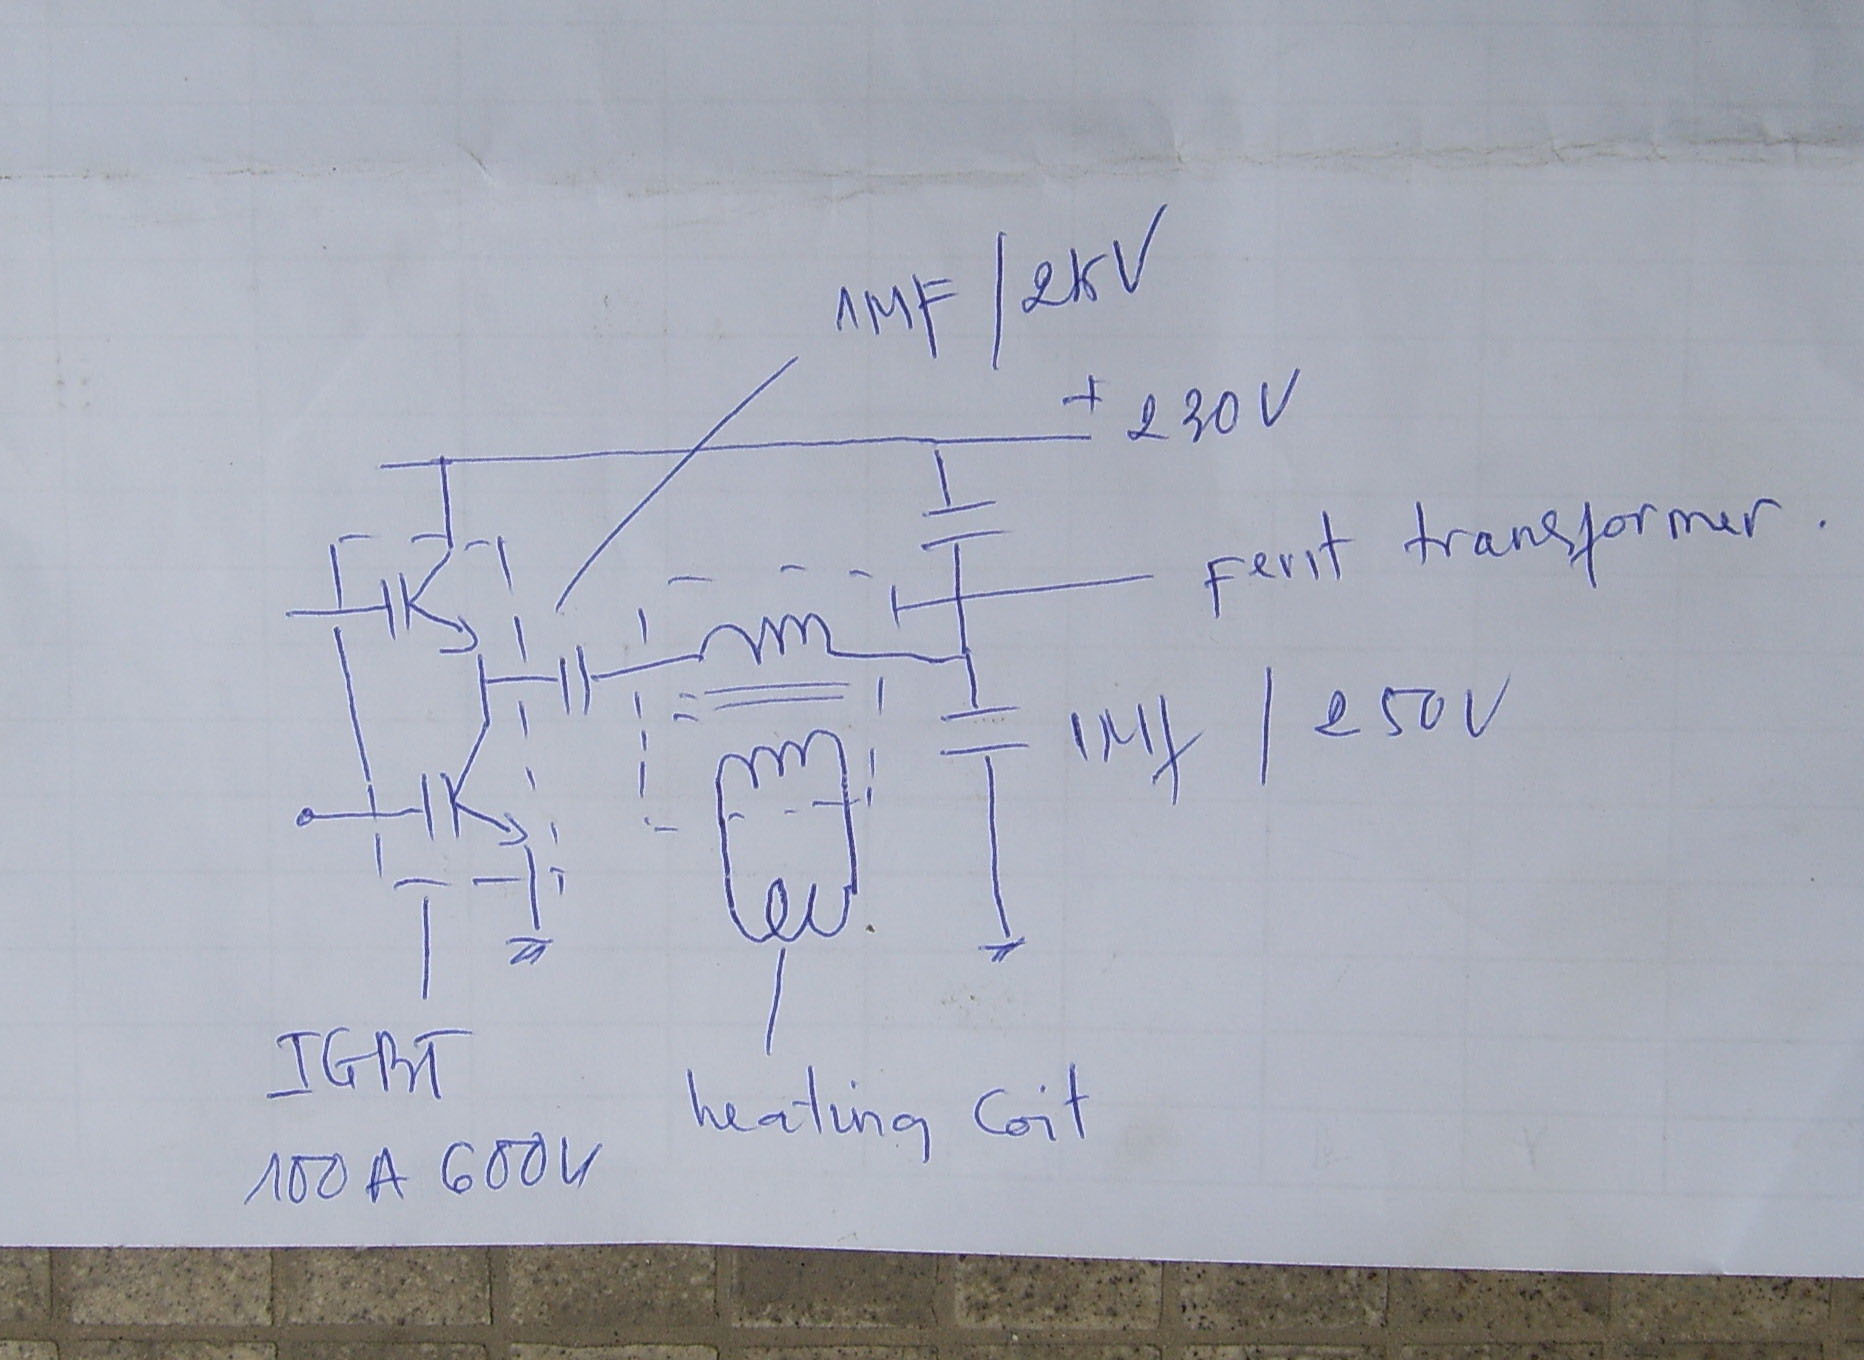 1MF / 2kV
+ 230V
Ferit transformer.
1Mf / 250V
IGBT
100A 600V
heating Coit